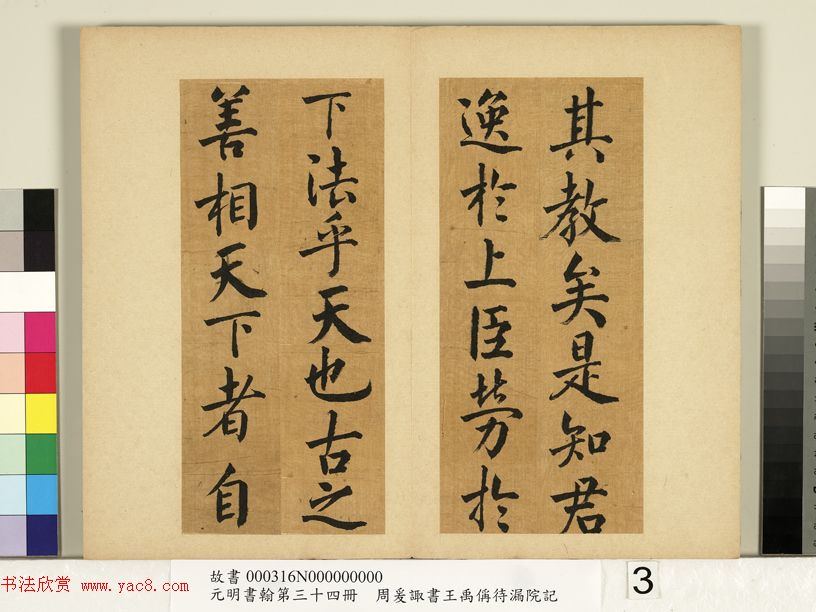 其教矣是知君
逸於上臣勞於
下法乎天也古之
善相天下者自
故書 000316N000000000
元明書翰第三十四冊 周爰諏書王禹偁待漏院記
3
书法欣赏 www.yac8.com